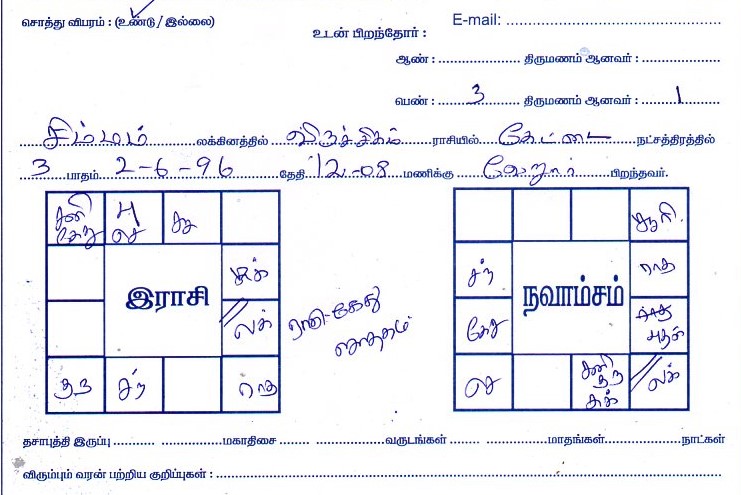 சொத்து விபரம் : (உண்டு / இல்லை)
E-mail:
உடன் பிறந்தோர் :
ஆண் : திருமணம் ஆனவர் :
பெண் : 3 திருமணம் ஆனவர் : 1
சிம்மம் லக்கினத்தில் விருச்சிகம் ராசியில் கேட்டை நட்சத்திரத்தில்
3 பாதம் 2-6-96 தேதி 12-08 மணிக்கு வேலூர் பிறந்தவர்.
சனி கேது
செ
இராசி
லக்
ராகு-கேது
ஜாதகம்
குரு சந்
நவாம்சம்
சந்
கேது
செ
சனி
லக்
தசாபுத்தி இருப்பு மகாதிசை வருடங்கள் மாதங்கள் நாட்கள்
விரும்பும் வரன் பற்றிய குறிப்புகள் :